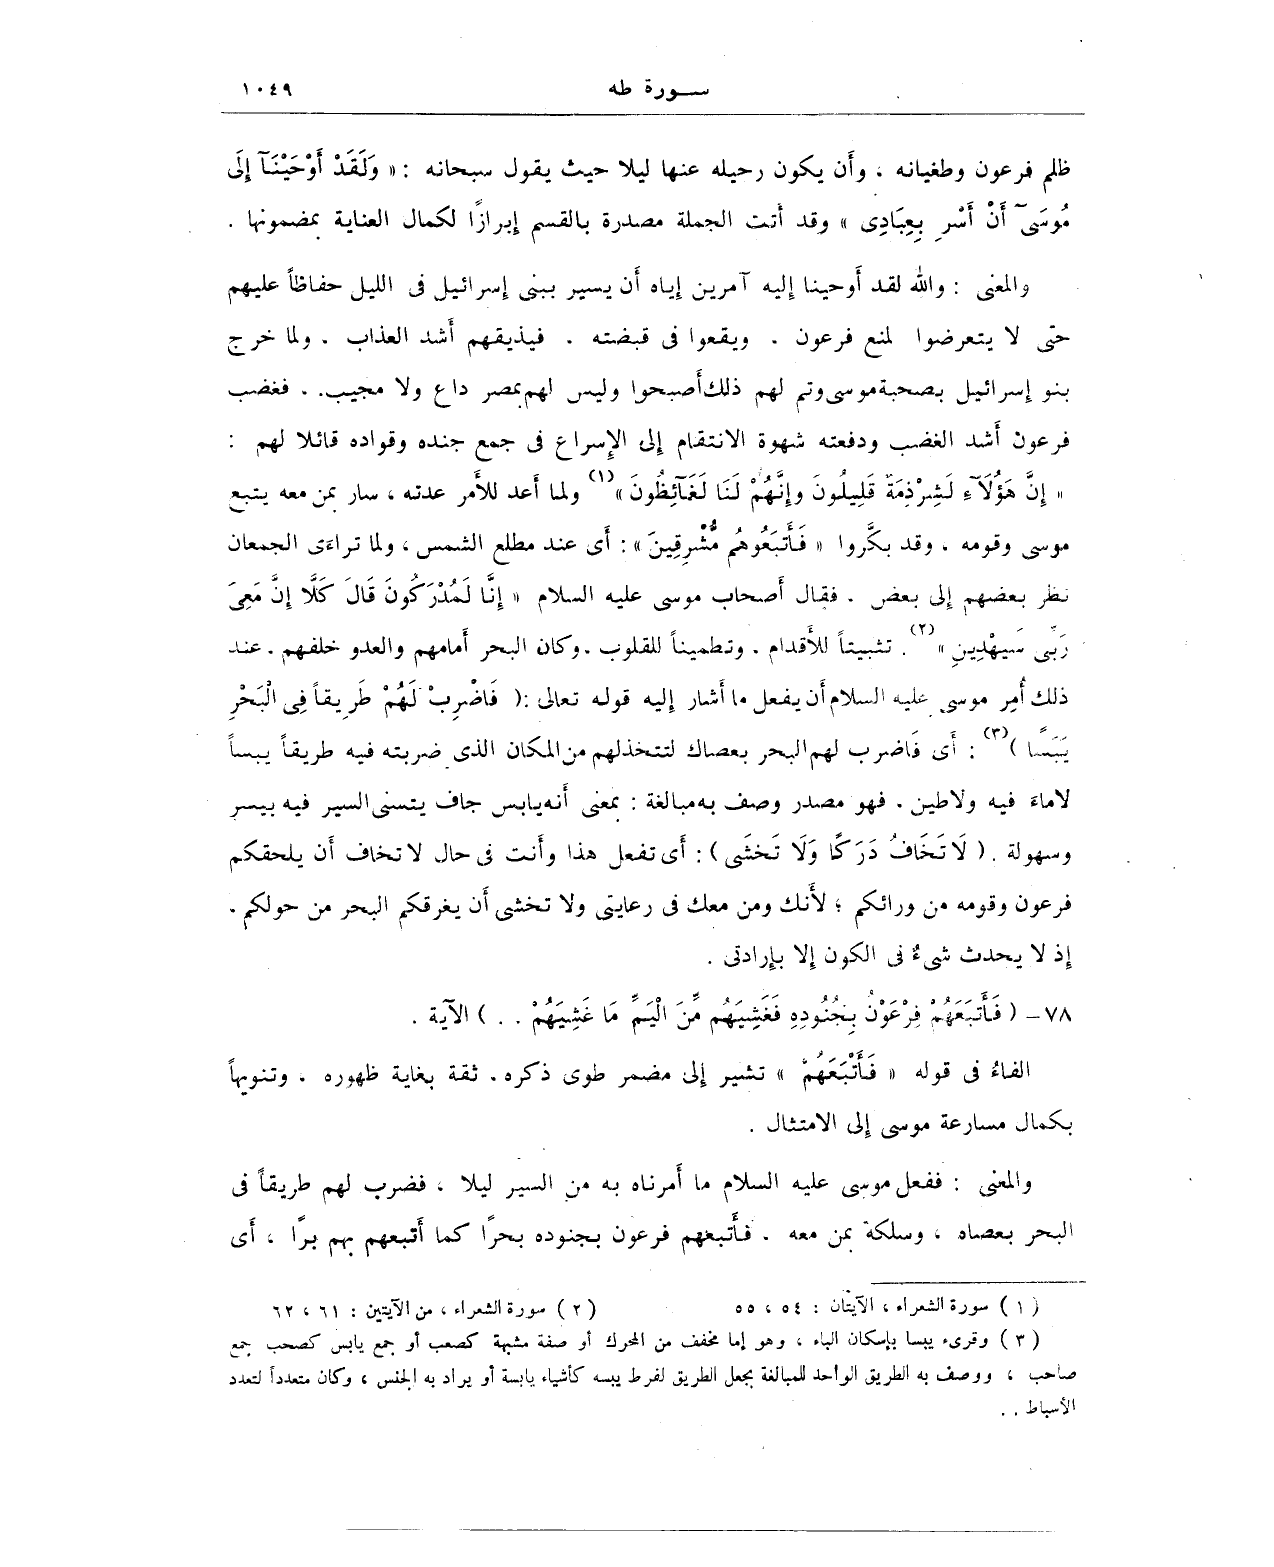 سورة طه
١٠٤٩
ظلم فرعون وطغيانه ، وأَن يكون رحيله عنها ليلا حيث يقول سبحانه : « وَلَقَدْ أَوْحَيْنَآ إِلَى
مُوسَىٓ أَنْ أَسْرِ بِعِبَادِى » وقد أَتت الجملة مصدرة بالقسم إبرازًا لكمال العناية بمضمونها .
والمعنى : والله لقد أَوحينا إليه آمرين إياه أَن يسير ببنى إسرائيل فى الليل حفاظاً عليهم
حتى لا يتعرضوا لمنع فرعون . ويقعوا فى قبضته . فيذيقهم أَشد العذاب . ولما خرج
بنو إسرائيل بصحبة موسى وتم لهم ذلك أَصبحوا وليس لهم بمصر داع ولا مجيب. . فغضب
فرعون أَشد الغضب ودفعته شهوة الانتقام إلى الإسراع فى جمع جنده وقواده قائلا لهم :
« إِنَّ هَؤُلَآءِ لَشِرْذِمَةٌ قَلِيلُونَ وإِنَّهُمْ لَنَا لَغَآئِظُونَ »(١) ولما أَعد للأَمر عدته ، سار بمن معه يتبع
موسى وقومه ، وقد بكَّروا « فَأَتْبَعُوهُم مُّشْرِقِينَ » : أَى عند مطلع الشمس ، ولما تراءَى الجمعان
نظر بعضهم إلى بعض . فقال أَصحاب موسى عليه السلام « إِنَّا لَمُدْرَكُونَ قَالَ كَلَّا إِنَّ مَعِىَ
رَبِّى سَيهْدِينِ »(٢) . تثبيتاً للأَقدام . وتطميناً للقلوب . وكان البحر أَمامهم والعدو خلفهم . عند
ذلك أُمِر موسى عليه السلام أَن يفعل ما أَشار إليه قوله تعالى : ( فَاضْرِبْ لَهُمْ طَرِيقاً فِى الْبَحْرِ
يَبَسًا )(٣) : أَى فَاضرب لهم البحر بعصاك لتتخذلهم من المكان الذى ضربته فيه طريقاً يبساً
لاماءَ فيه ولاطين . فهو مصدر وصف به مبالغة : بمعنى أَنه يابس جاف يتسنى السير فيه بيسر
وسهولة . ( لَا تَخَافُ دَرَكًا وَلَا تَخشَى ) : أَى تفعل هذا وأَنت فى حال لا تخاف أَن يلحقكم
فرعون وقومه من ورائكم ؛ لأَنك ومن معك فى رعايتى ولا تخشى أَن يغرقكم البحر من حولكم .
إذ لا يحدث شىءٌ فى الكون إلا بإرادتى .
٧٨ – ( فَأَتبَعَهُمْ فِرْعَوْنُ بِجُنُودِهِ فَغَشِيَهُم مِّنَ الْيَمِّ مَا غَشِيَهُمْ . . ) الآية .
الفاءُ فى قوله « فَأَتْبَعَهُمْ » تشير إلى مضمر طوى ذكره . ثقة بغاية ظهوره . وتنويهاً
بكمال مسارعة موسى إلى الامتثال .
والمعنى : ففعل موسى عليه السلام ما أَمرناه به من السير ليلا ، فضرب لهم طريقاً فى
البحر بعصاه ، وسلكه بمن معه . فأَتبعهم فرعون بجنوده بحرًا كما أَتبعهم بهم برًّا ، أَى
( ١ ) سورة الشعراء ، الآيتان : ٥٤ ، ٥٥ ( ٢ ) سورة الشعراء ، من الآيتين : ٦١ ، ٦٢
( ٣ ) وقرىء يبسا بإسكان الباء ، وهو إما مخفف من المحرك أو صفة مشبهة كصعب أو جمع يابس كصحب جمع
صاحب ، ووصف به الطريق الواحد للمبالغة بجعل الطريق لفرط يبسه كأشياء يابسة أو يراد به الجنس ، وكان متعدداً لتعدد
الأسباط . .